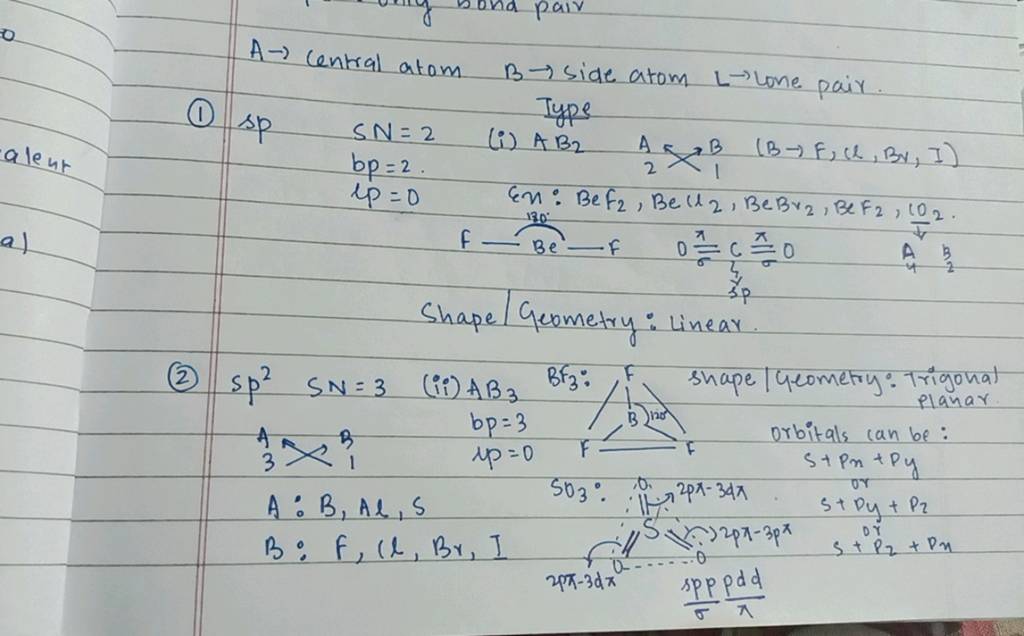 only bond pair
A→ central atom B→ side atom L→ Lone pair.
Type
① sp SN=2 (i) AB2 A B (B→ F, Cl, Br, I)
2 1
bp=2.
lp=0 Ex: BeF2, BeCl2, BeBr2, BeF2, CO2.
180°
F — Be — F O π σ C π σ O A B
4 2
sp
Shape/Geometry: Linear.
② sp² SN=3 (ii) AB3 BF3: F shape/Geometry: Trigonal
planar.
bp=3 B 120°
A B lp=0 F F orbitals can be:
3 1 s+Px+Py
or
A: B, Al, S SO3: O 2pπ-3dπ s+Py+Pz
or
B: F, Cl, Br, I S 2pπ-3pπ s+Pz+Px
O O
2pπ-3dπ
spp pdd
σ π
aleur
a)